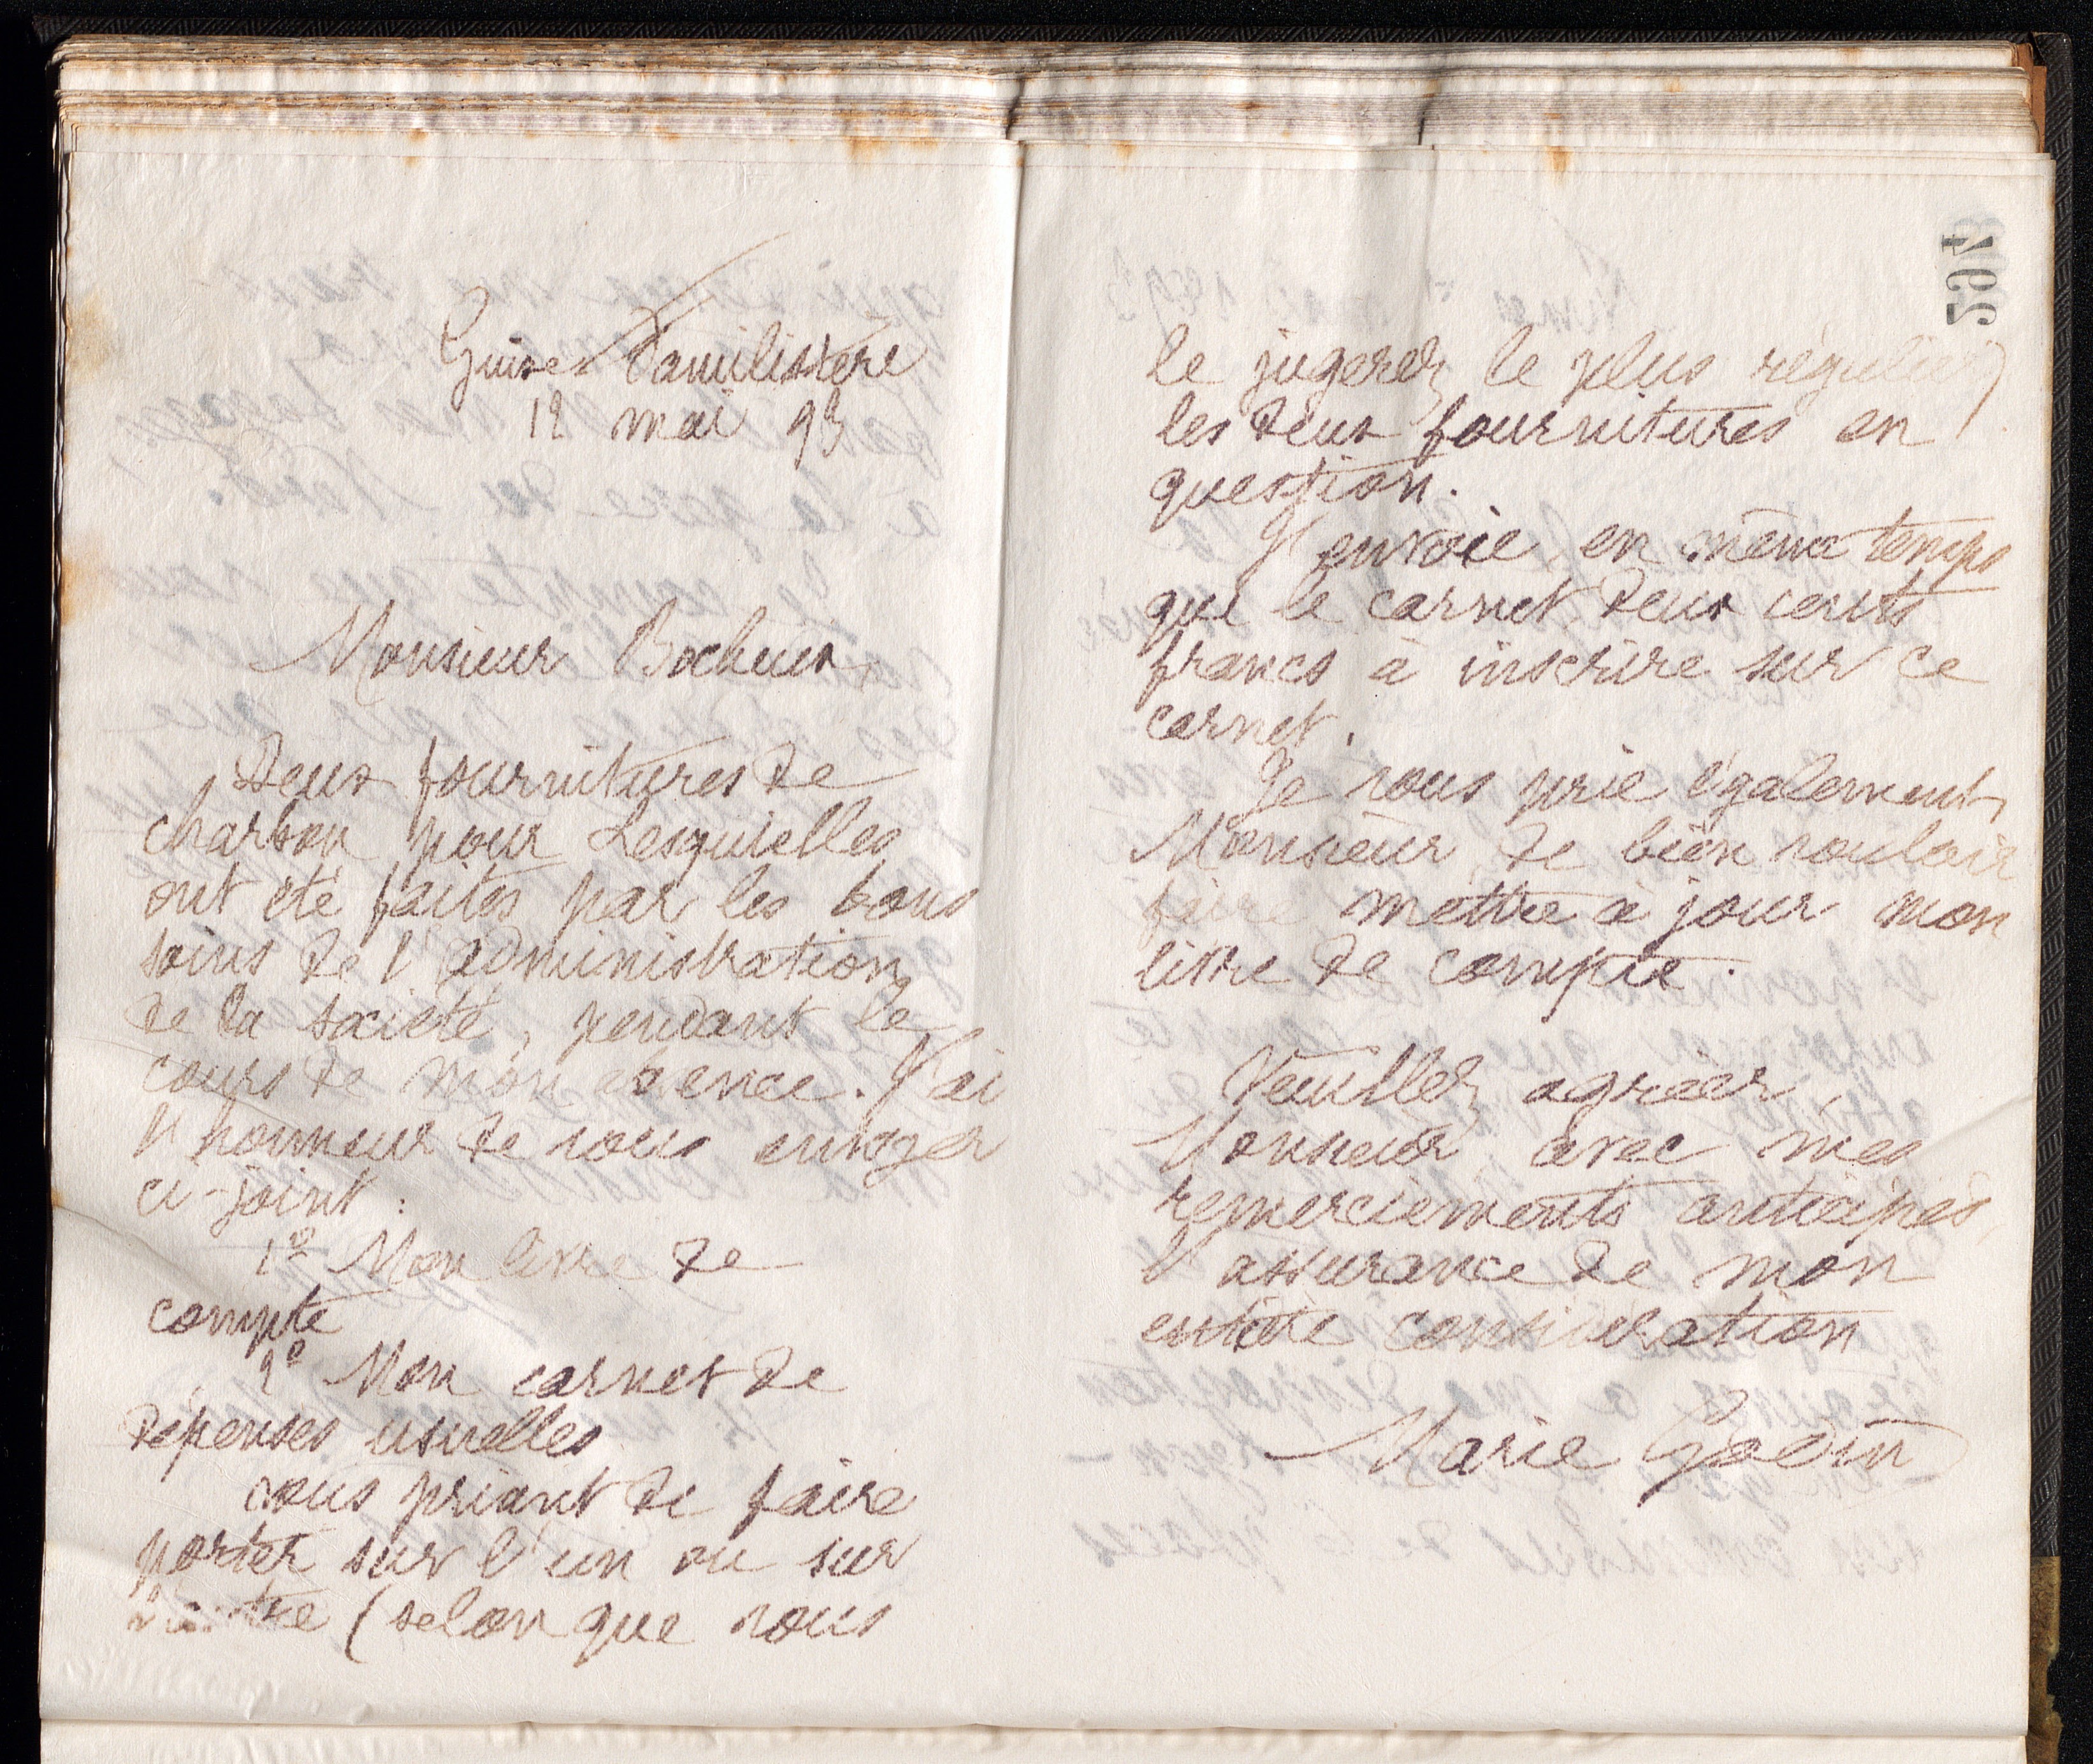 Guise Familistère
12 mai 93
Monsieur Bocheux,
Deux fournitures de
charbon pour Lesquielles
ont été faites par les bons
soins de l'administration
de la société, pendant le
cours de mon absence. J'ai
l'honneur de vous envoyer
ci-joint :
1º Mon livre de
compte
2º Mon carnet de
dépenses usuelles
vous priant de faire
porter sur l'un ou sur
l'autre (selon que vous
467
le jugerez le plus régulier)
les deux fournitures en
question.
J'envoie en même temps
que le carnet deux cents
francs à inscrire sur ce
carnet.
Je vous prie également,
Monsieur, de bien vouloir
faire mettre à jour mon
livre de compte.
Veuillez agréer,
Monsieur, avec mes
remerciements anticipés,
l'assurance de mon
entière considération
Marie Godin